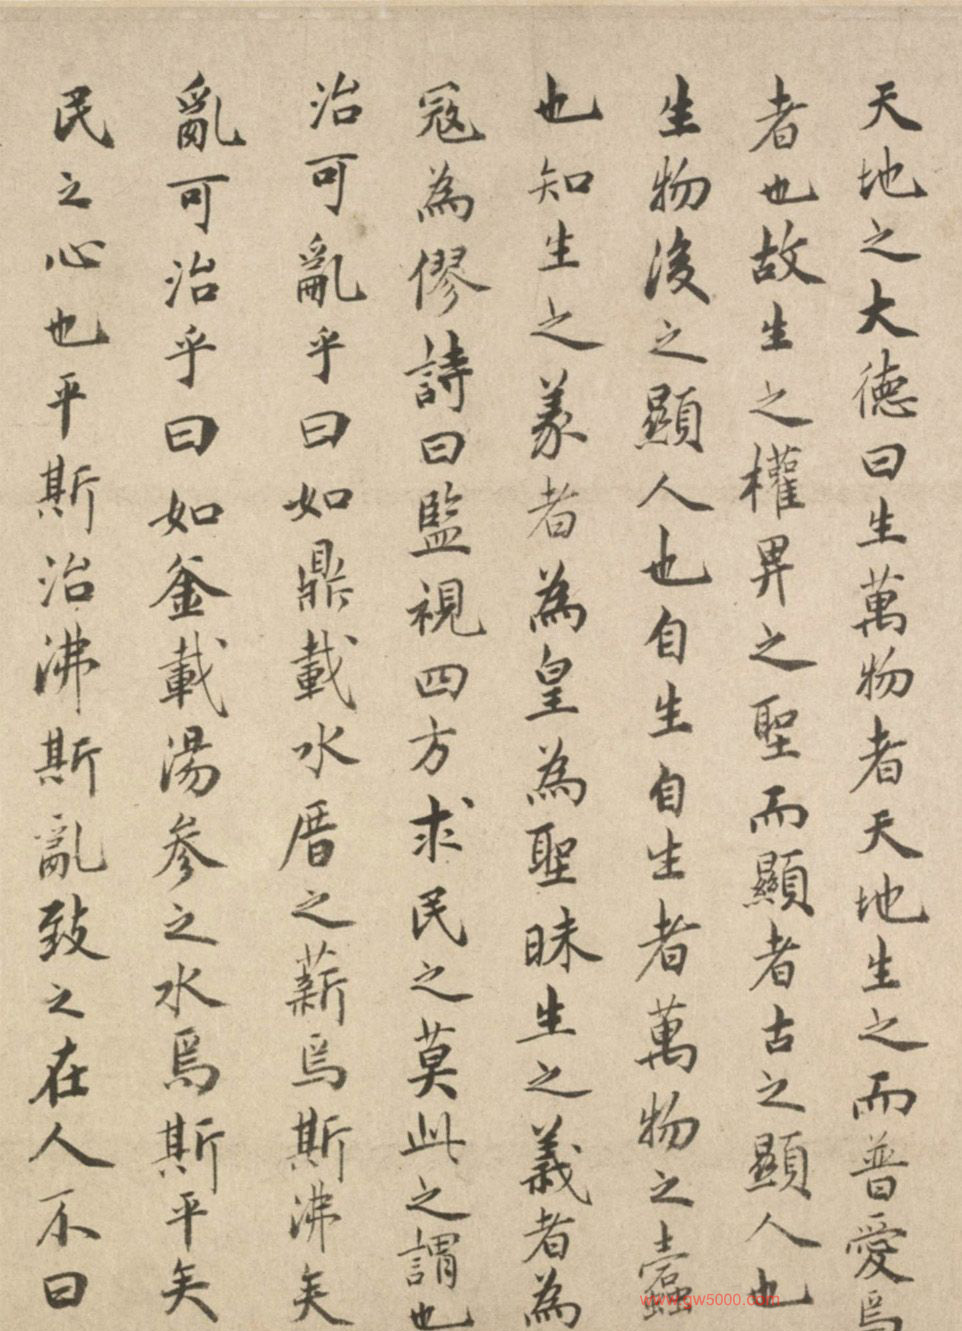 天地之大德曰生萬物者天地生之而普愛焉
者也故生之權畀之聖而顯者古之顯人也
生物後之顯人也自生自生者萬物之蠹
也知生之義者為皇為聖昧生之義者為
寇為僇詩曰監視四方求民之莫此之謂也
治可亂乎曰如鼎載水厝之薪焉斯沸矣
亂可治乎曰如釜載湯參之水焉斯平矣
民之心也平斯治沸斯亂致之在人不曰
www.gw5000.com